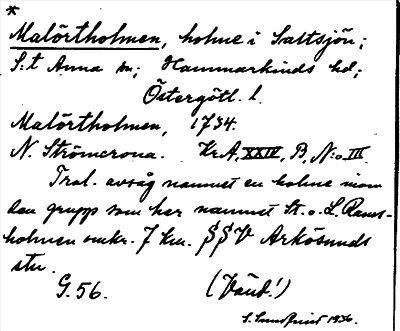 *
Malörtholmen, holme i Saltsjön;
S:t Anna sn; Hammarkinds hd;
Östergötl. l.
Malörtholmen, 1734.
N. Strömcrona. Kr.A. XXIV, B, N:o III.
Trol. avsåg namnet en holme inom
den grupp som har namnet St. o. L. Rams-
holmen omkr. 7 km. SSV Arkösunds
stn.
G. 56. (Vänd!)
S. Sundquist 1936.